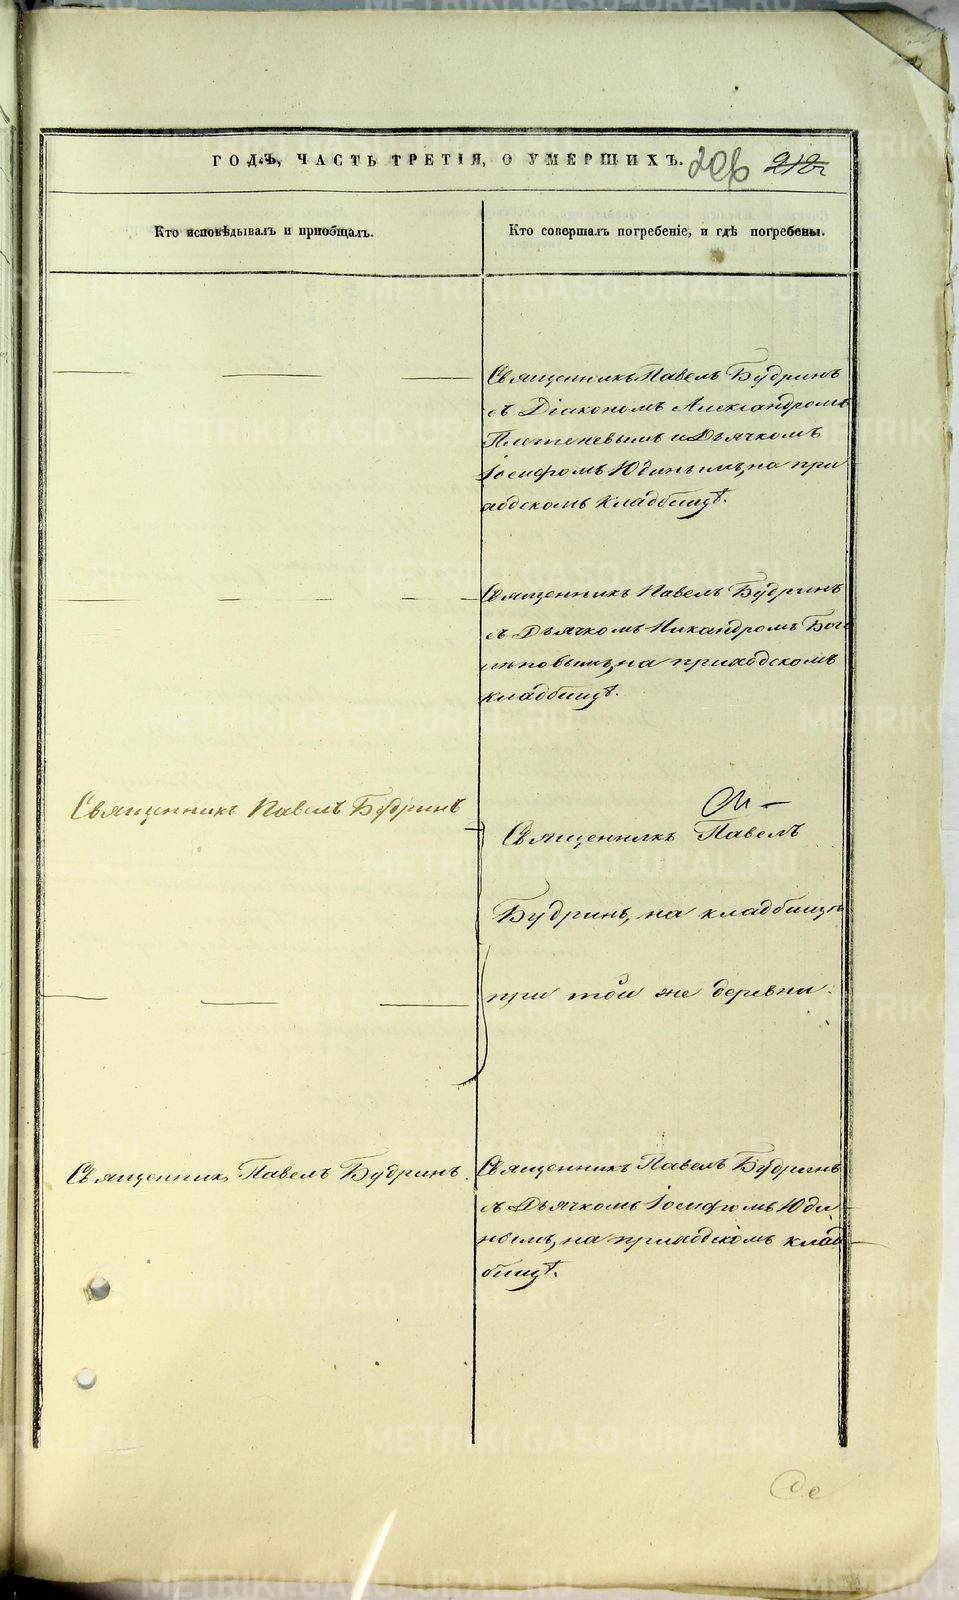 ГОДЪ, ЧАСТЬ ТРЕТІЯ, О УМЕРШИХЪ. 212
Кто исповѣдывалъ и пріобщалъ.
Кто совершалъ погребеніе, и гдѣ погребены.
Священникъ Павелъ Будринъ
съ Діакономъ Александромъ
Плотеневымъ и Дьячкомъ
Іосифомъ Юдинымъ, на при
ходскомъ кладбищѣ.
Священникъ Павелъ Будринъ
съ Дьячкомъ Никандромъ Бого
лѣповымъ, на приходскомъ
кладбищѣ.
Священникъ Павелъ Будринъ
Священникъ Павелъ
Будринъ, на кладбищѣ
при той же деревни.
Священникъ Павелъ Будринъ.
Священникъ Павелъ Будринъ
съ Дьячкомъ Іосифомъ Юди
нымъ, на приходскомъ клад
бищѣ.
METRIKI.GASO-URAL.RU